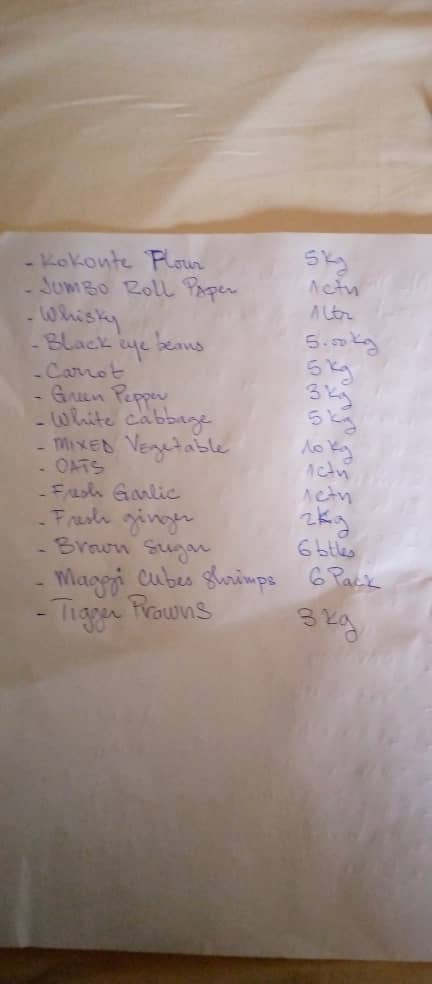 - Kokonte Flour 5kg
- Jumbo Roll Paper 1ctn
- Whisky 1ltr
- Black eye beans 5.00kg
- Carrot 5kg
- Green Pepper 3kg
- White cabbage 5kg
- MIXED Vegetable 10kg
- OATS 1ctn
- Fresh Garlic 1ctn
- Fresh ginger 2kg
- Brown Sugar 6btles
- Maggi cubes Shrimps 6 Pack
- Tigger Prawns 3kg